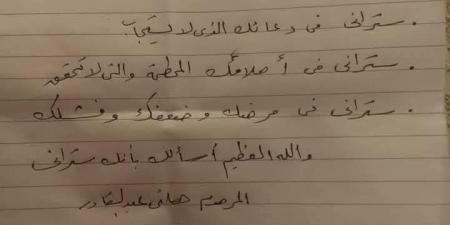 . ستراني في دعائك الذي لا يستجاب
. ستراني في أحلامك المحطمة والتي لا تتحقق
. ستراني في مرضك وضعفك وفشلك
والله العظيم أسألك بأنك ستراني
المرحوم عبدالقادر